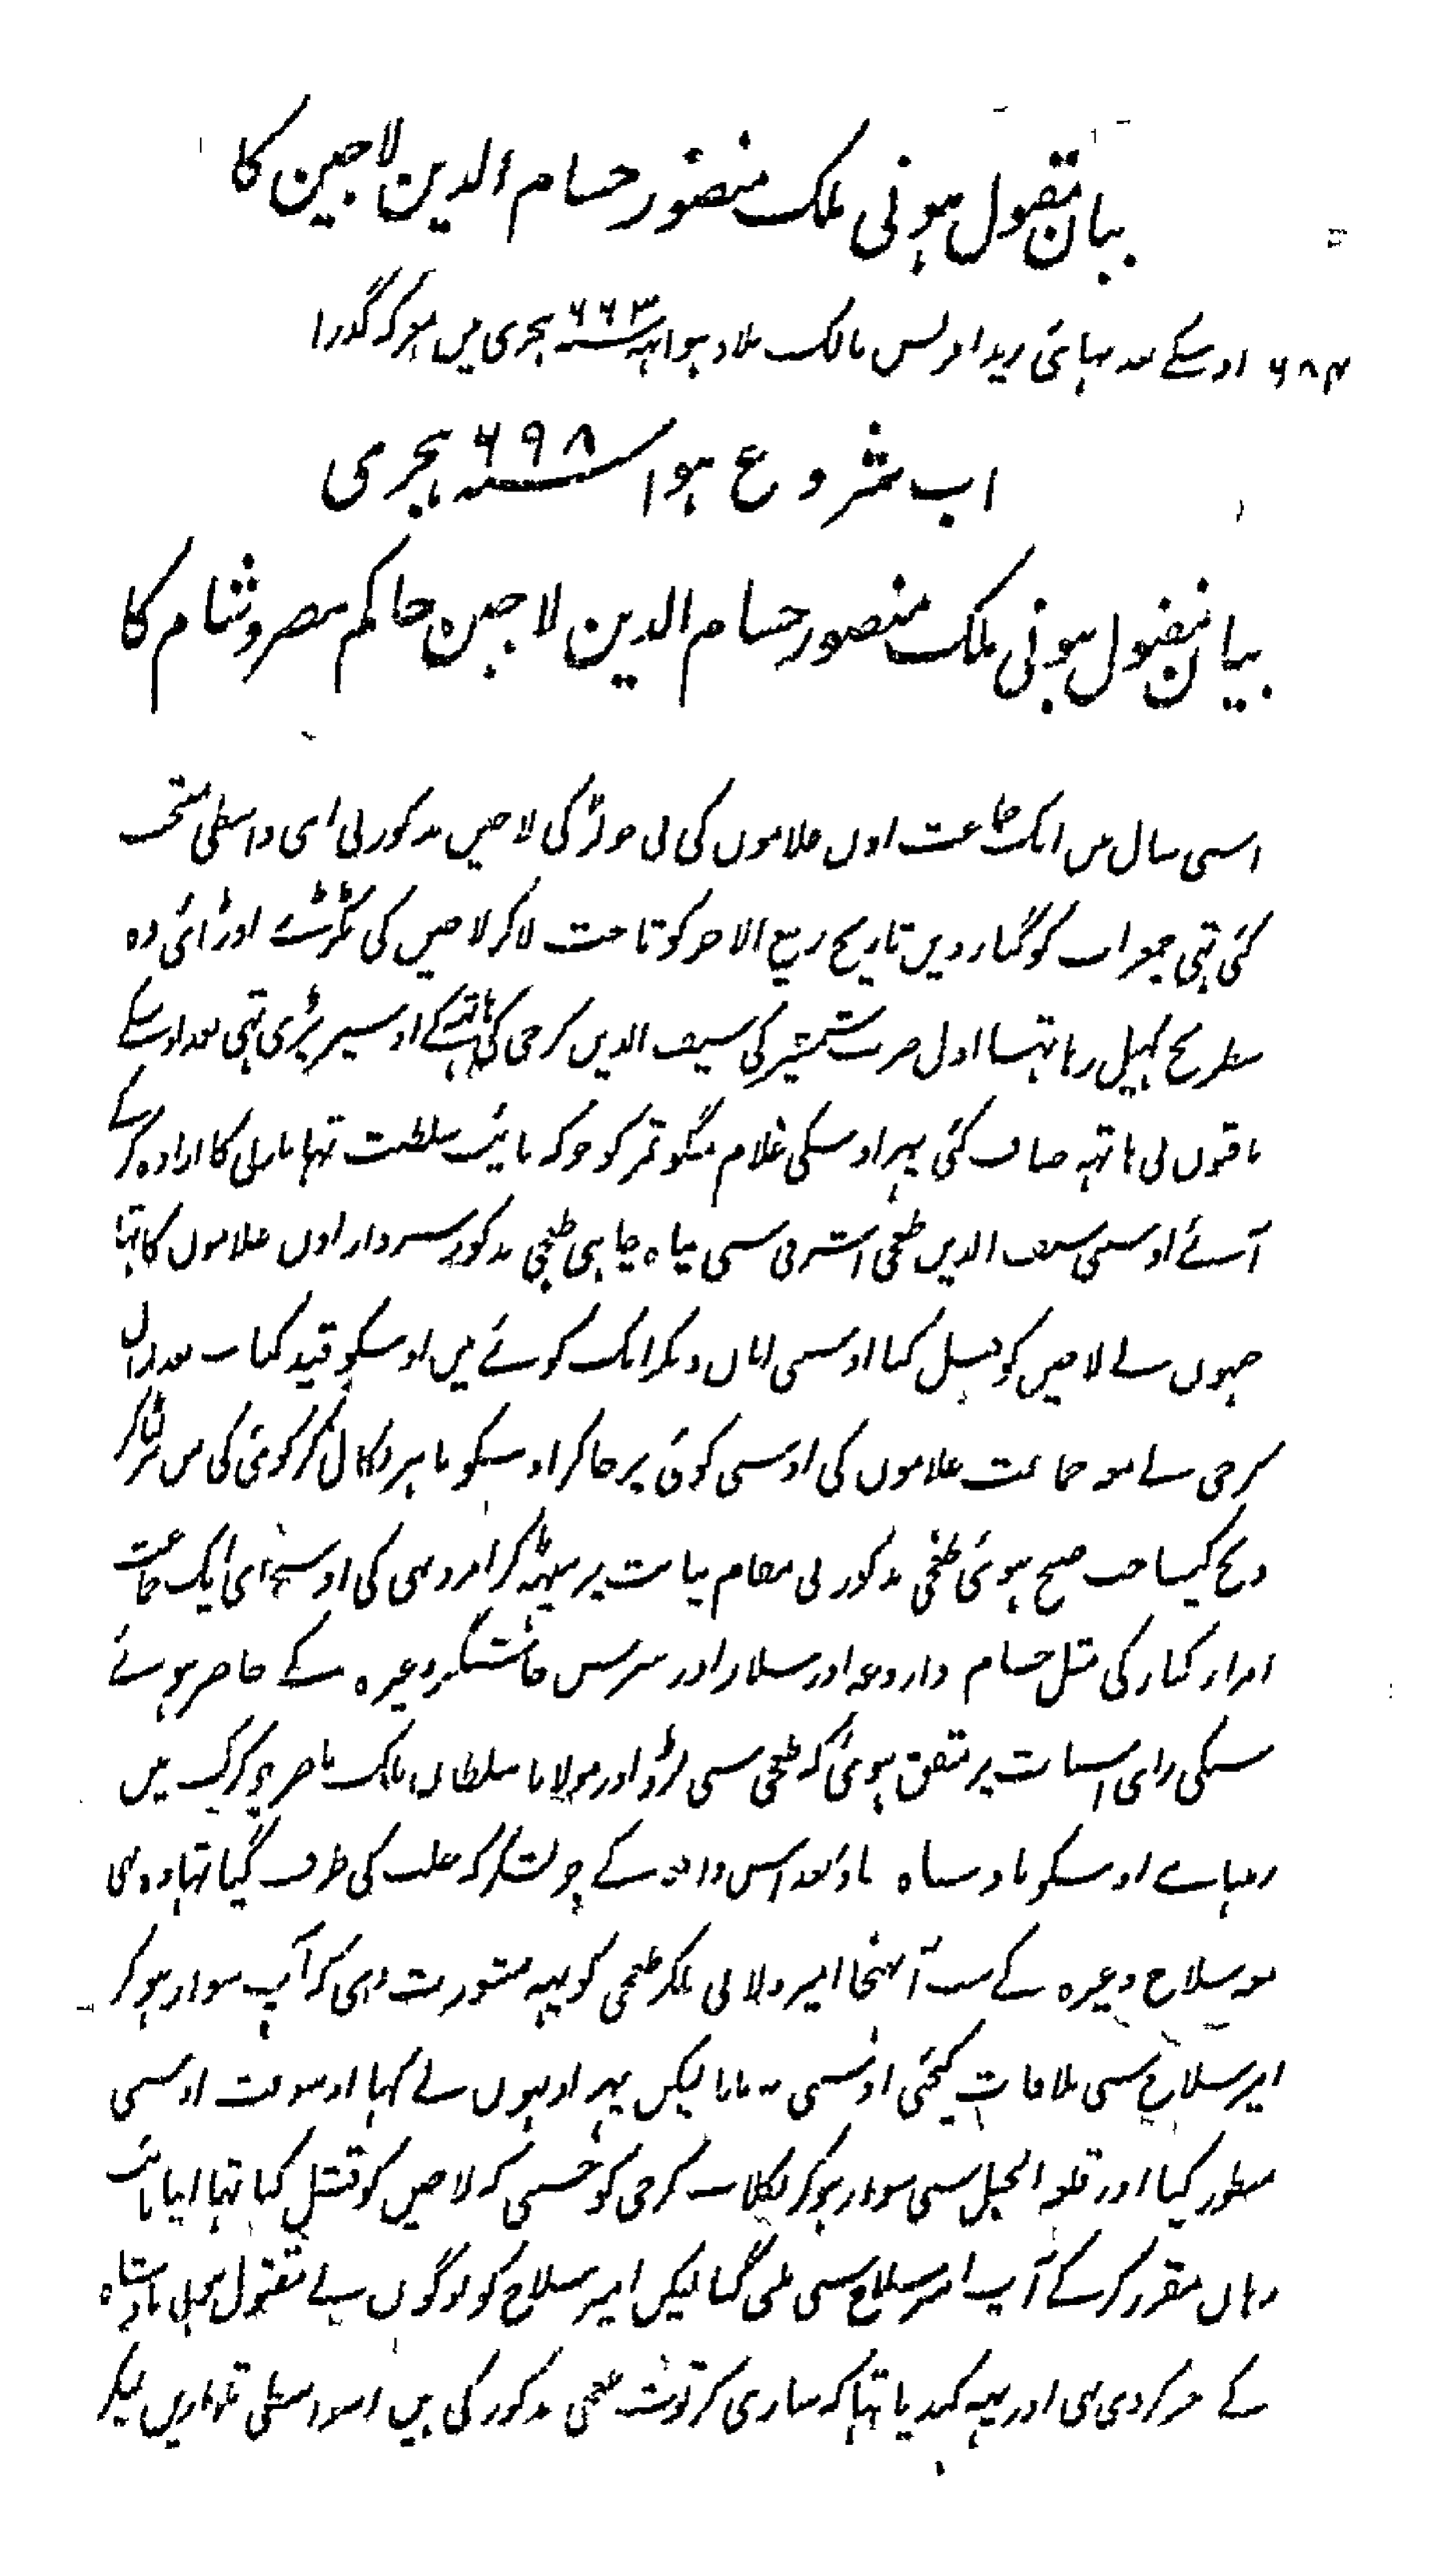 بیان مقتول ہونی ملک منصور حسام الدین لاجین کا
۶۸۴ اوسکے بعد بہائی مالک بلاد ہوا یہہ سنہ ۶۶۳ ہجری میں ہوکر گذرا
اب شروع ہوا سنہ ۶۹۸ ہجری
بیان مقتول ہونی ملک منصور حسام الدین لاجین حاکم مصر و شام کا
اسی سال میں ایک جماعت اون غلاموں کی نی جوکہ لاجین مذکور نی اسی واسطی منتخب
کئی تہی جمعرات کو گیارویں تاریخ ربیع الاخر کو تاخت لاکر لاجین کی ٹکڑے اوڑائی وہ
شطرنج کہیل رہا تہا اول ضرب شمشیر کی سیف الدین کرجی کی ہاتہہ کے اوسپر پڑی تہی بعد اوسکے
باقیوں نی ہاتہہ صاف کئی پہر اوسکی غلام منگوتمر کو جوکہ نائب سلطنت تہا مارنی کا ارادہ کرکے
آئے اوسنی سیف الدین طغجی اشرفی سی پناہ چاہی طغجی مذکور سردار اون غلاموں کا تہا
جنہوں نے لاجین کو قتل کیا اوسنی امان دیکر ایک کوئے میں اوسکو قید کیا بعد ازاں
کرجی نے معہ جماعت غلاموں کی اوسی کوئی پر جاکر اوسکو باہر نکال کر کوئی کی من پر لٹاکر
ذبح کیا جب صبح ہوئی طغجی مذکور نی مقام نیابت پر بیٹہہ کر امر و نہی کی اوسجای ایک جماعت
امراء کبار کی مثل حسام داروغہ اور سلار اور بیبرس جاشنگیر وغیرہ کے حاضر ہوئے
سبکی رای اسبات پر متفق ہوئی کہ طغجی سی لڑو اور مولانا سلطان ملک ناصر جو کرک میں
رہتا ہے اوسکو بادشاہ بناؤ بعد اس واقعہ کے جو لشکر کہ حلب کی طرف گیا تہا وہ بہی
معہ سلاح وغیرہ کے سب آپہنچا امیر ولا نی ملکر طغجی کو یہہ مشورت دی کہ آپ سوار ہوکر
امیر سلاح سی ملاقات کیجئی اوسنی نہ مانا لیکن پہر اونہوں نے کہا اوسوقت اوسنی
منظور کیا اور قلعہ الجبل سی سوار ہوکر نکلا کرجی کو جسنی کہ لاجین کو قتل کیا تہا اپنا نائب
وہاں مقرر کرکے آپ امیر سلاح سی ملنی گیا لیکن امیر سلاح کو لوگوں نے مقتول ہونی بادشاہ
کے خبر کردی تہی اور یہہ کہدیا تہا کہ ساری کرتوت طغجی مذکور کی ہیں اسواسطی تلواریں لیکر